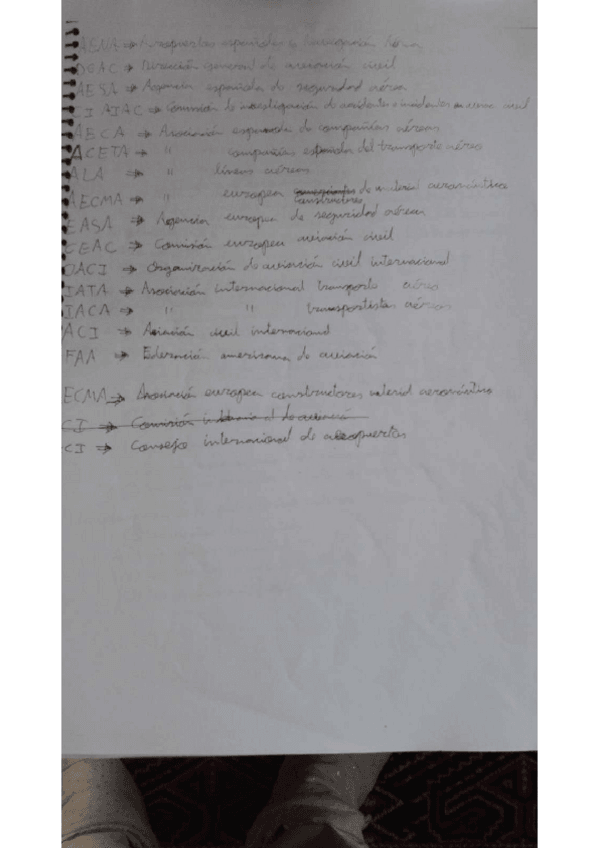 AENA → Aeropuertos españoles y navegación aérea
DGAC → Dirección General de aviación civil
AESA → Agencia española de seguridad aérea
CIAIAC → Comisión de investigación de accidentes e incidentes en civil
AECA → Asociación española de compañías aéreas
ACETA → " compañías española del transporte aéreo
ALA → " líneas aéreas
AECMA → " europea constructores de material aeronáutico
EASA → Agencia europea de seguridad aérea
CEAC → Comisión europea aviación civil
OACI → Organización de aviación civil internacional
IATA → Asociación internacional transporte aéreo
IACA → " " transportistas aéreos
ACI → Aviación civil internacional
FAA → Federación americana de aviación
ECMA → Asociación europea constructores material aeronáutico
CI → Comisión de aviación
CI → Consejo internacional de aeropuertos